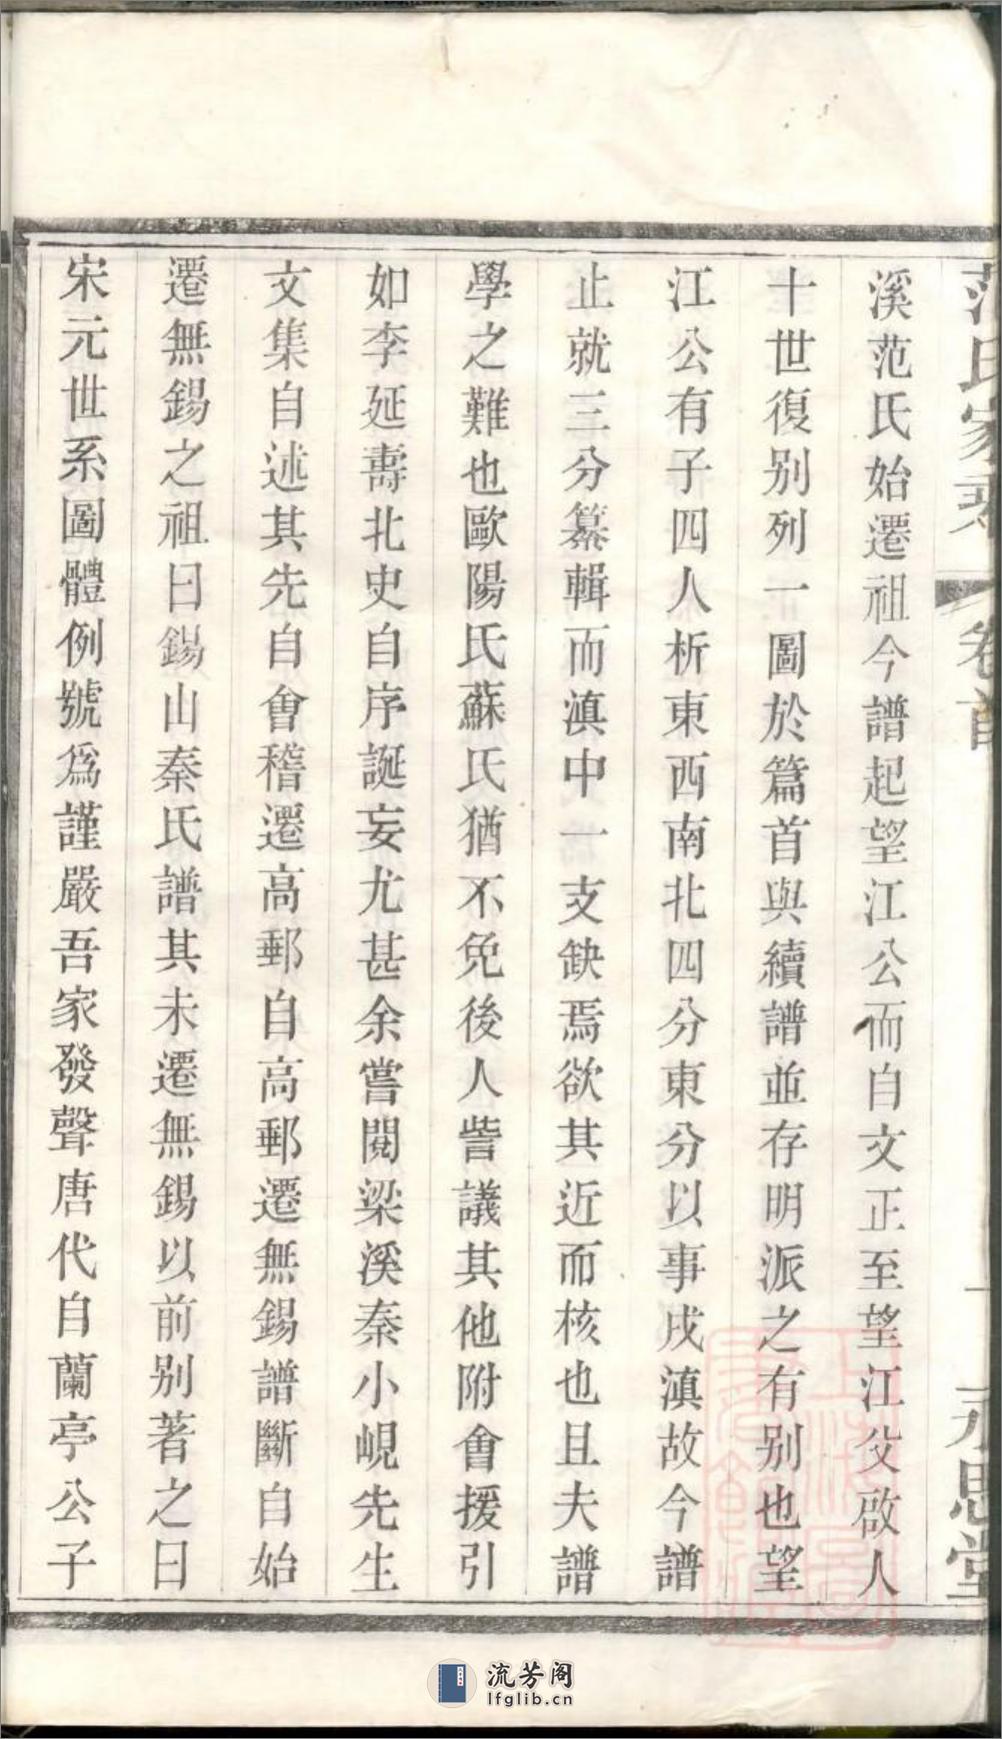 范氏家乘
卷首
一
永思堂
溪范氏始遷祖今譜起望江公而自文正至望江父啟人
十世復别列一圖於篇首與續譜並存明派之有别也望
江公有子四人析東西南北四分東分以事戍滇故今譜
止就三分纂輯而滇中一支缺焉欲其近而核也且夫譜
學之難也歐陽氏蘇氏猶不免後人訾議其他附會援引
如李延壽北史自序誕妄尤甚余嘗閱梁溪秦小峴先生
文集自述其先自會稽遷高郵自高郵遷無錫譜斷自始
遷無錫之祖曰錫山秦氏譜其未遷無錫以前别著之曰
宋元世系圖體例號爲謹嚴吾家發聲唐代自蘭亭公子
流芳阁
lfglib.cn